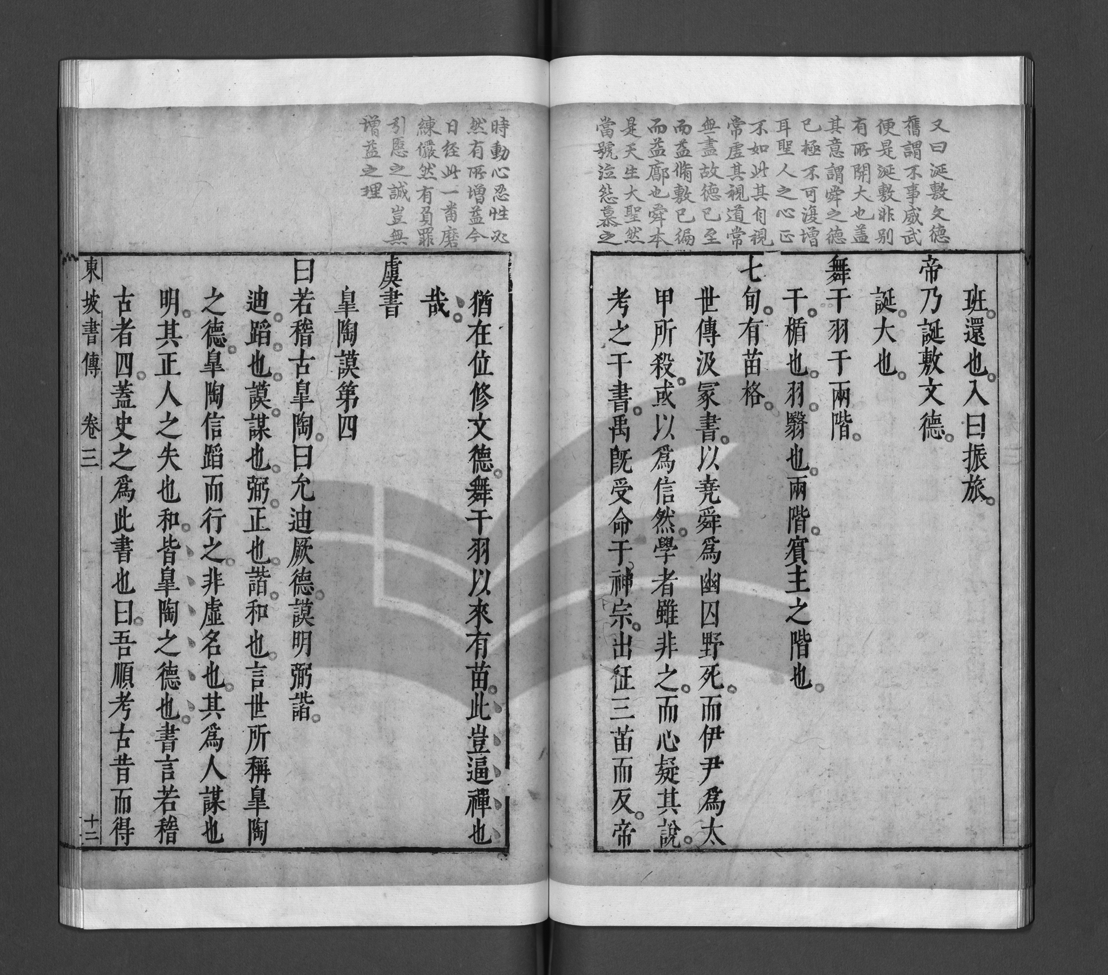 又曰誕敷文德
舊謂不事威武
便是誕敷非別
有所開大也蓋
其意謂舜之德
已極不可復增
耳聖人之心正
不如此其自視
常虛其視道常
無盡故德已至
而益脩敷已徧
而益廓也舜本
是天生大聖然
當號泣怨慕之
班還也入曰振旅
帝乃誕敷文德
誕大也
舞干羽于兩階
干楯也羽翳也兩階賓主之階也
七旬有苗格
世傳汲冢書以堯舜為幽囚野死而伊尹為太
甲所殺或以為信然學者雖非之而心疑其說
考之于書禹旣受命于神宗出征三苗而反帝
時動心忍性必
然有所增益今
日經此一番磨
練儼然有負罪
引慝之誠豈無
增益之理
猶在位修文德舞干羽以來有苗此豈逼禪也
哉
虞書
皐陶謨第四
曰若稽古皐陶曰允迪厥德謨明弼諧
迪蹈也謨謀也弼正也諧和也言世所稱皐陶
之德皐陶信蹈而行之非虛名也其為人謀也
明其正人之失也和皆皐陶之德也書言若稽
古者四蓋史之為此書也曰吾順考古昔而得
東坡書傳 卷三 十二